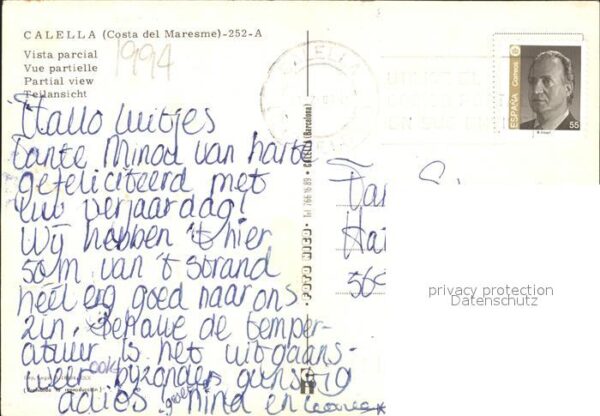 CALELLA (Costa del Maresme)-252-A
Vista parcial
Vue partielle
Partial view
Teilansicht
1994
Hallo luitjes
Tante Minou van harte
gefeliciteerd met
uw verjaardag!
Wij hebben 't hier
50 m van 't strand
héél erg goed naar ons
zin. Behalve de temper-
atuur is het uitgaans-
weer ook byzonder gunstig
adios
Nina en
CALELLA
ESPAÑA
Correos
55
CALELLA (Barcelona)
Fam
Ha
569
privacy protection
Datenschutz